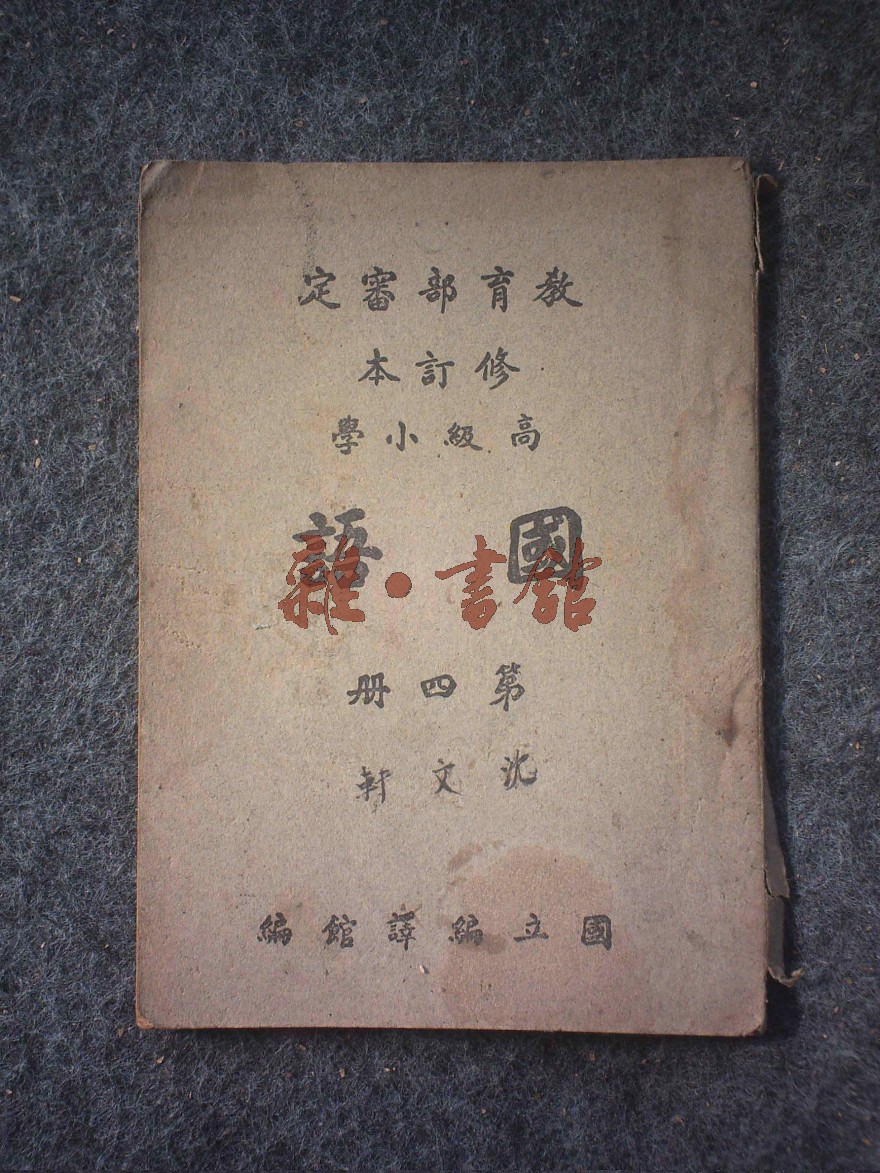 教育部審定
修訂本
高級小學
國語
雜·書館
第四册
沈文軒
國立編譯館編